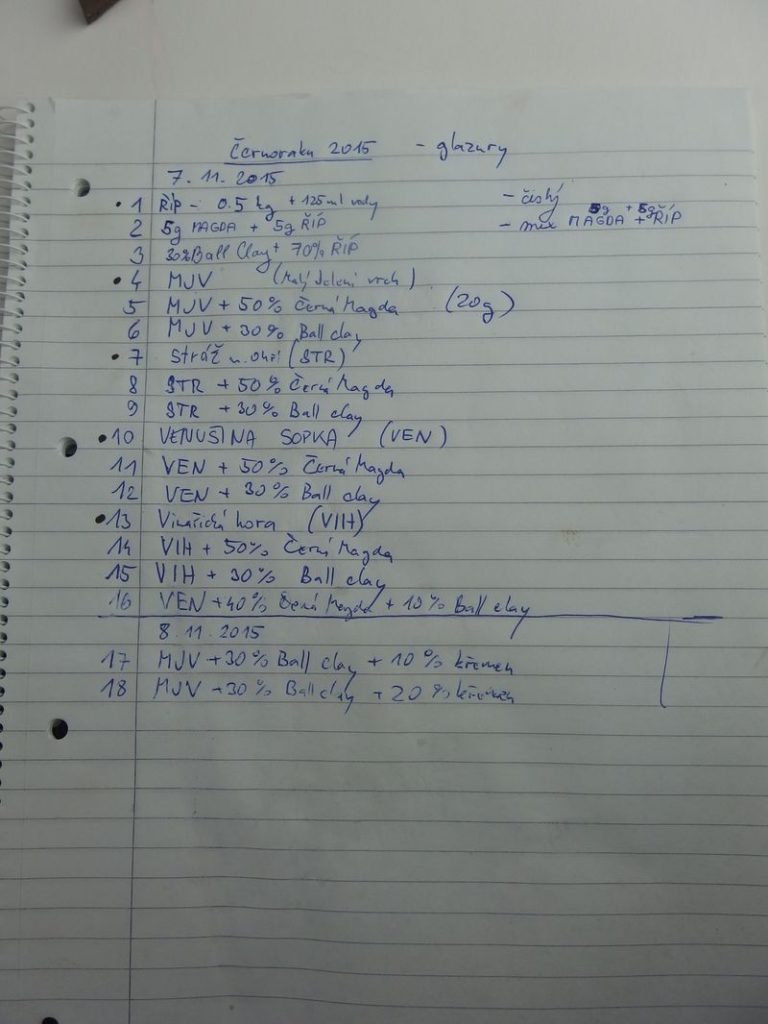 Černoraku 2015 - glazury
7.11.2015
• 1 ŘÍP - 0.5 kg + 125 ml vody - čistý
2 5g MAGDA + 5g ŘÍP - mix 5g MAGDA + 5g ŘÍP
3 30% Ball Clay + 70% ŘÍP
• 4 MJV (Malý Jelení vrch)
5 MJV + 50% Černá Magda (20g)
6 MJV + 30% Ball clay
• 7 Stráž n. Ohří (STR)
8 STR + 50% Černá Magda
9 STR + 30% Ball clay
• 10 VENUŠINA SOPKA (VEN)
11 VEN + 50% Černá Magda
12 VEN + 30% Ball clay
• 13 Vinařická hora (VIH)
14 VIH + 50% Černá Magda
15 VIH + 30% Ball clay
16 VEN + 40% Černá Magda + 10% Ball clay
8.11.2015
17 MJV + 30% Ball clay + 10% křemen
18 MJV + 30% Ball clay + 20% křemen